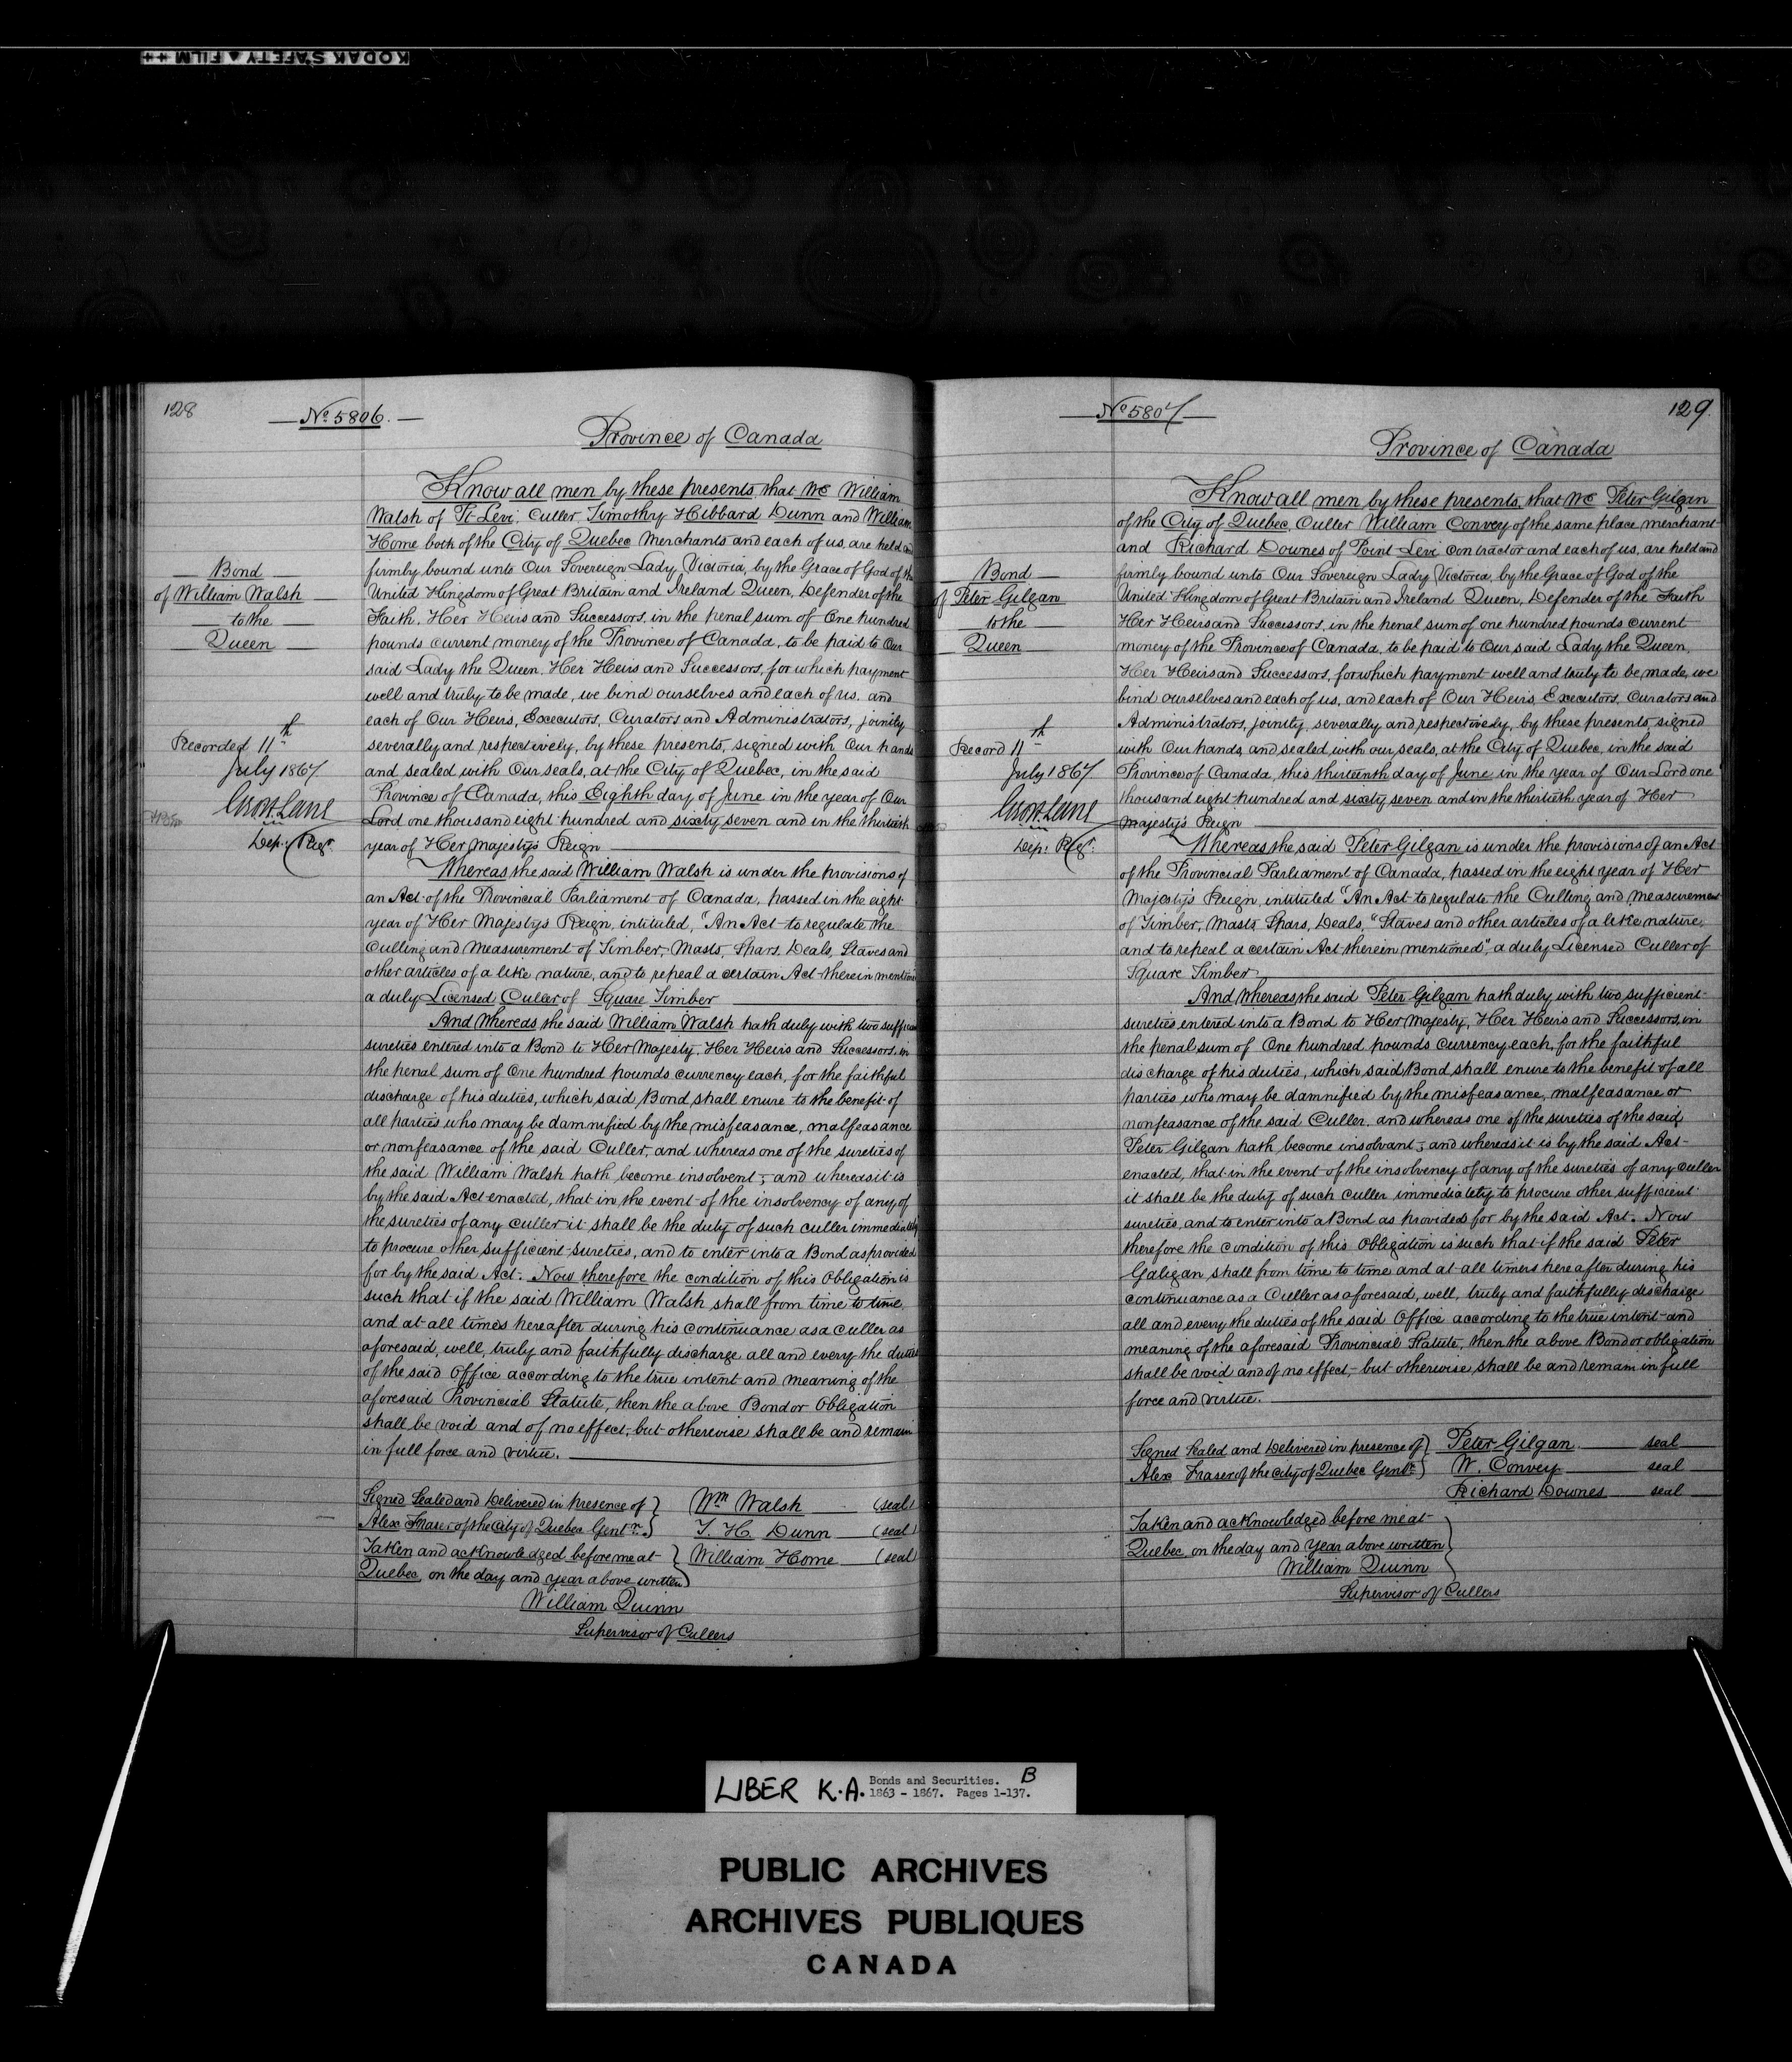 KODAK SAFETY FILM
128
No. 5806.
Province of Canada
Know all men by these presents, that We William
Walsh of Pt. Levi, Culler, Timothy Hibbard Dunn and William
Home both of the City of Quebec Merchants and each of us, are held and
firmly bound unto Our Sovereign Lady Victoria, by the Grace of God of the
United Kingdom of Great Britain and Ireland Queen, Defender of the
Faith, Her Heirs and Successors, in the penal sum of One hundred
pounds current money of the Province of Canada, to be paid to Our
said Lady the Queen, Her Heirs and Successors, for which payment
well and truly to be made, we bind ourselves and each of us, and
each of Our Heirs, Executors, Curators and Administrators, jointly
severally and respectively, by these presents, signed with Our hands
and sealed with Our seals, at the City of Quebec, in the said
Province of Canada, this Eighth day of June in the year of Our
Lord one thousand eight hundred and sixty seven and in the thirtieth
year of Her Majesty's Reign
Bond
of William Walsh
to the
Queen
Recorded 11th
July 1867
Dep: Regr.
Whereas the said William Walsh is under the provisions of
an Act of the Provincial Parliament of Canada, passed in the eight
year of Her Majesty's Reign, intituled, "An Act to regulate the
Culling and Measurement of Timber, Masts, Spars, Deals, Staves and
other articles of a like nature, and to repeal a certain Act therein mentioned
a duly Licensed Culler of Square Timber
And Whereas the said William Walsh hath duly with two sufficient
sureties entered into a Bond to Her Majesty, Her Heirs and Successors, in
the penal sum of One hundred pounds currency each, for the faithful
discharge of his duties, which said Bond shall enure to the benefit of
all parties who may be damnified by the misfeasance, malfeasance
or nonfeasance of the said Culler, and whereas one of the sureties of
the said William Walsh hath become insolvent; and whereas it is
by the said Act enacted, that in the event of the insolvency of any of
the sureties of any culler it shall be the duty of such culler immediately
to procure other sufficient sureties, and to enter into a Bond as provided
for by the said Act. Now therefore the condition of this Obligation is
such that if the said William Walsh shall from time to time,
and at all times hereafter during his continuance as a culler as
aforesaid, well, truly and faithfully discharge all and every the duties
of the said Office according to the true intent and meaning of the
aforesaid Provincial Statute, then the above Bond or Obligation
shall be void and of no effect, but otherwise shall be and remain
in full force and virtue.
Signed Sealed and Delivered in presence of } Wm Walsh (seal)
Alex Fraser of the City of Quebec Gentn. } T. H. Dunn (seal)
Taken and acknowledged before me at } William Home (seal)
Quebec, on the day and year above written }
William Quinn
Supervisor of Cullers
No. 5807
129.
Province of Canada
Know all men by these presents, that We Peter Gilgan
of the City of Quebec, Culler William Convey of the same place merchant
and Richard Downes of Point Levi contractor and each of us, are held and
firmly bound unto Our Sovereign Lady Victoria, by the Grace of God of the
United Kingdom of Great Britain and Ireland Queen, Defender of the Faith
Her Heirs and Successors, in the penal sum of one hundred pounds current
money of the Province of Canada, to be paid to Our said Lady the Queen,
Her Heirs and Successors, for which payment well and truly to be made, we
bind ourselves and each of us, and each of Our Heirs, Executors, Curators and
Administrators, jointly, severally and respectively, by these presents, signed
with Our hands and sealed with our seals, at the City of Quebec, in the said
Province of Canada, this thirteenth day of June in the year of Our Lord one
thousand eight hundred and sixty seven and in the thirtieth year of Her
Majesty's Reign
Bond
of Peter Gilgan
to the
Queen
Record 11th
July 1867
Dep: Regr.
Whereas the said Peter Gilgan is under the provisions of an Act
of the Provincial Parliament of Canada, passed in the eight year of Her
Majesty's Reign, intituled "An Act to regulate the Culling and measurement
of Timber, Masts, Spars, Deals, "Staves and other articles of a like nature,
and to repeal a certain Act therein mentioned", a duly Licensed Culler of
Square Timber
And Whereas the said Peter Gilgan hath duly with two sufficient
sureties entered into a Bond to Her Majesty, Her Heirs and Successors, in
the penal sum of One hundred pounds Currency each, for the faithful
discharge of his duties, which said Bond shall enure to the benefit of all
parties who may be damnified by the misfeasance, malfeasance or
nonfeasance of the said Culler, and whereas one of the sureties of the said
Peter Gilgan hath become insolvant; and whereas it is by the said Act
enacted, that in the event of the insolvency of any of the sureties of any Culler
it shall be the duty of such culler immediately to procure other sufficient
sureties, and to enter into a Bond as provided for by the said Act. Now
therefore the condition of this Obligation is such that if the said Peter
Galigan shall from time to time and at all timers here after during his
continuance as a Culler as aforesaid, well, truly and faithfully discharge
all and every the duties of the said Office according to the true intent and
meaning of the aforesaid Provincial Statute, then the above Bond or obligation
shall be void and of no effect, but otherwise shall be and remain in full
force and virtue.
Signed Sealed and Delivered in presence of } Peter Gilgan seal
Alex Fraser of the City of Quebec Gentn. } W. Convey seal
Richard Downes seal
Taken and acknowledged before me at
Quebec, on the day and year above written
William Quinn
Supervisor of Cullers
LIBER K.A. Bonds and Securities. B
1863 - 1867. Pages 1-137.
PUBLIC ARCHIVES
ARCHIVES PUBLIQUES
CANADA